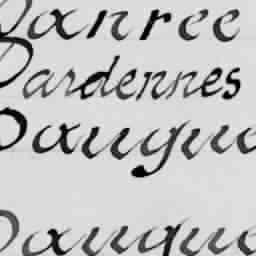 Danree
Dardennes
Daugue
Dauque